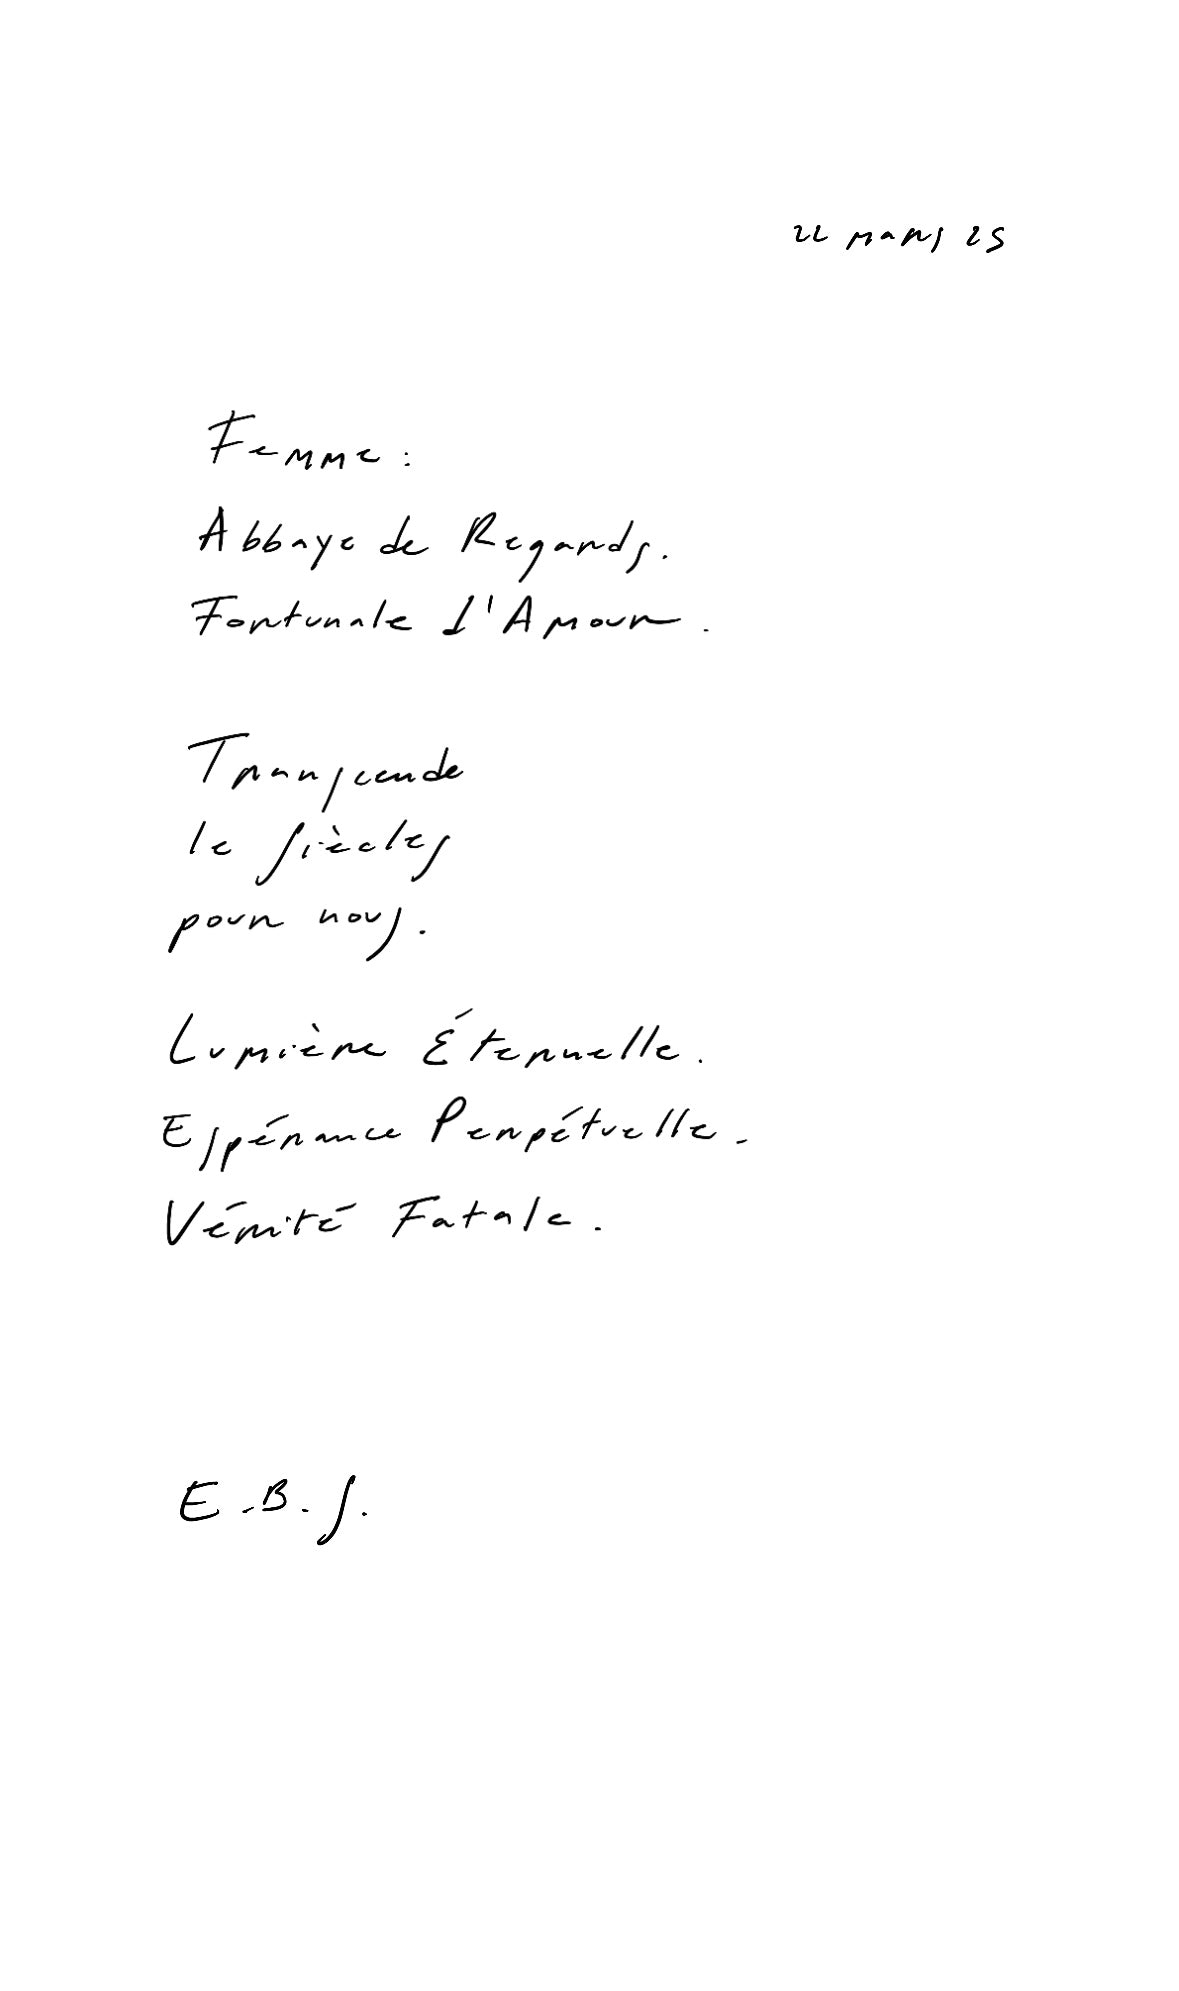 22 mars 25
Femme :
Abbaye de Regards.
Fortunale d'Amour.
Transcende
le siècles
pour nous.
Lumière Éternuelle.
Espérance Perpétuelle.
Vérité Fatale.
E.B.S.